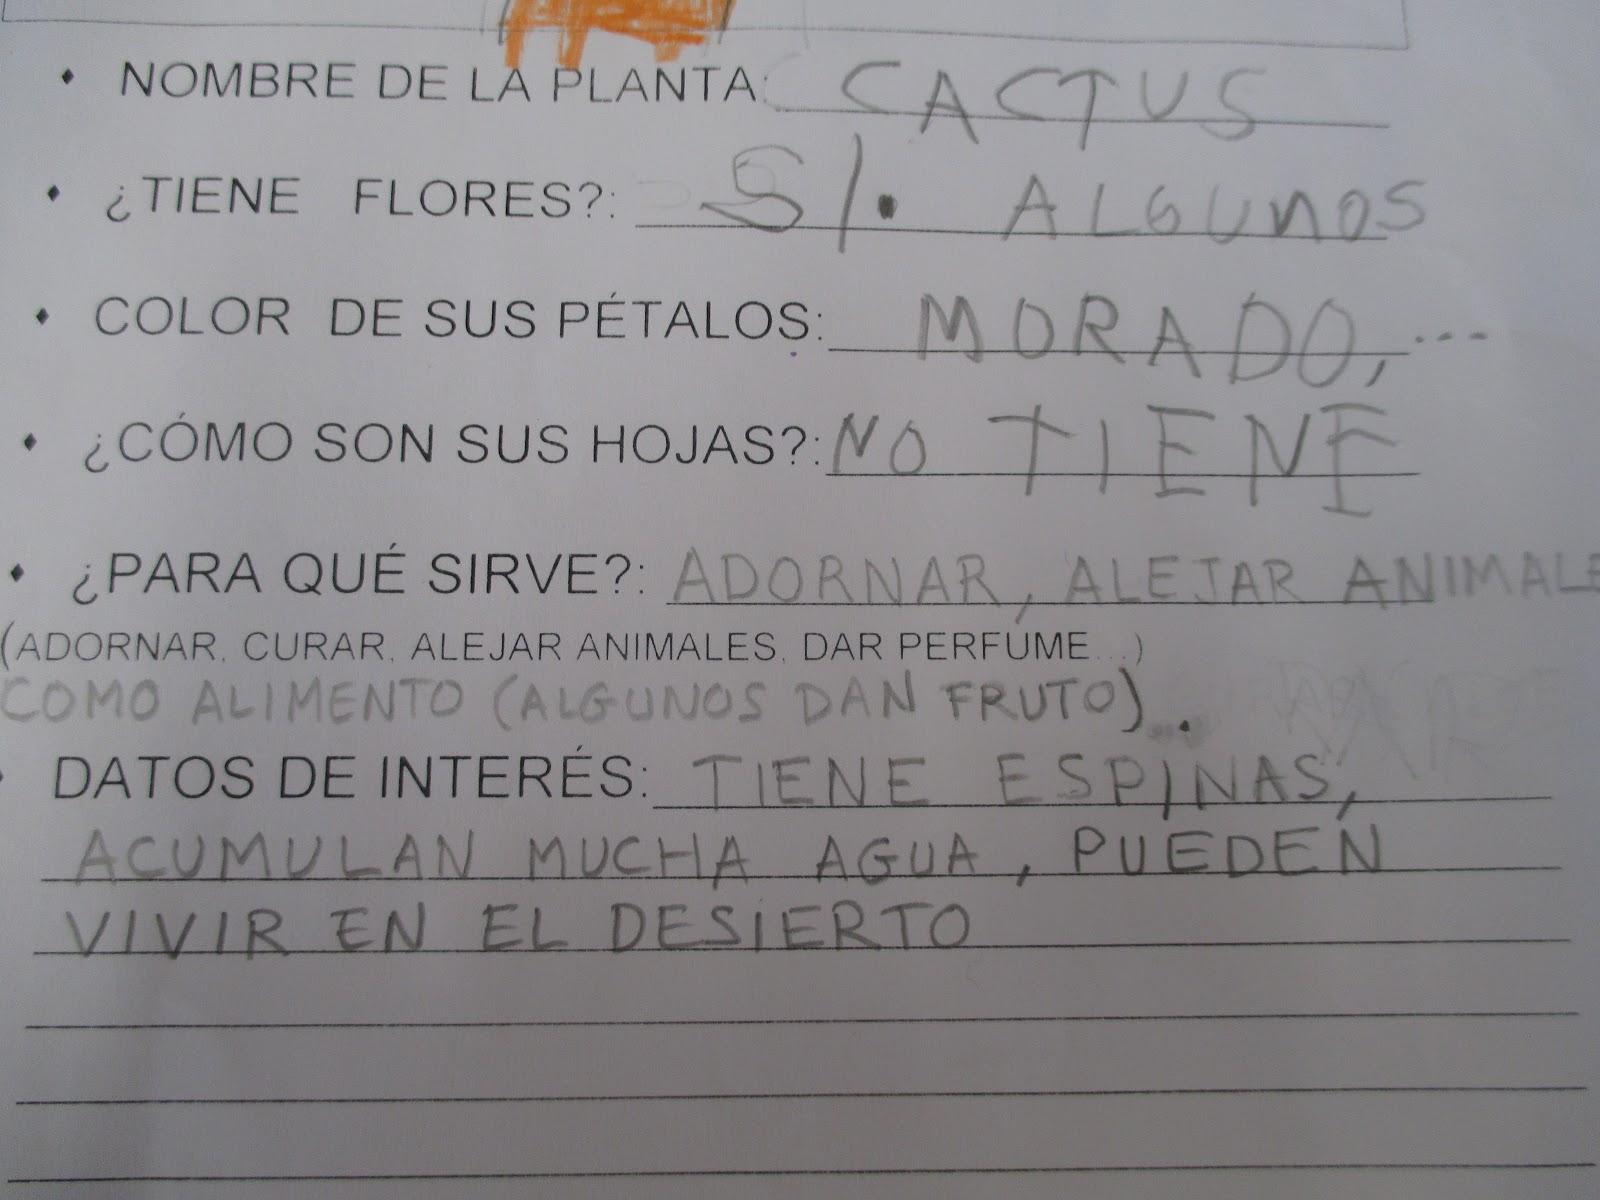 • NOMBRE DE LA PLANTA: CACTUS
• ¿TIENE FLORES?: SI. ALGUNOS
• COLOR DE SUS PÉTALOS: MORADO, ...
• ¿CÓMO SON SUS HOJAS?: NO TIENE
• ¿PARA QUÉ SIRVE?: ADORNAR, ALEJAR ANIMALE
(ADORNAR, CURAR, ALEJAR ANIMALES, DAR PERFUME...)
COMO ALIMENTO (ALGUNOS DAN FRUTO).
• DATOS DE INTERÉS: TIENE ESPINAS,
ACUMULAN MUCHA AGUA, PUEDEN
VIVIR EN EL DESIERTO